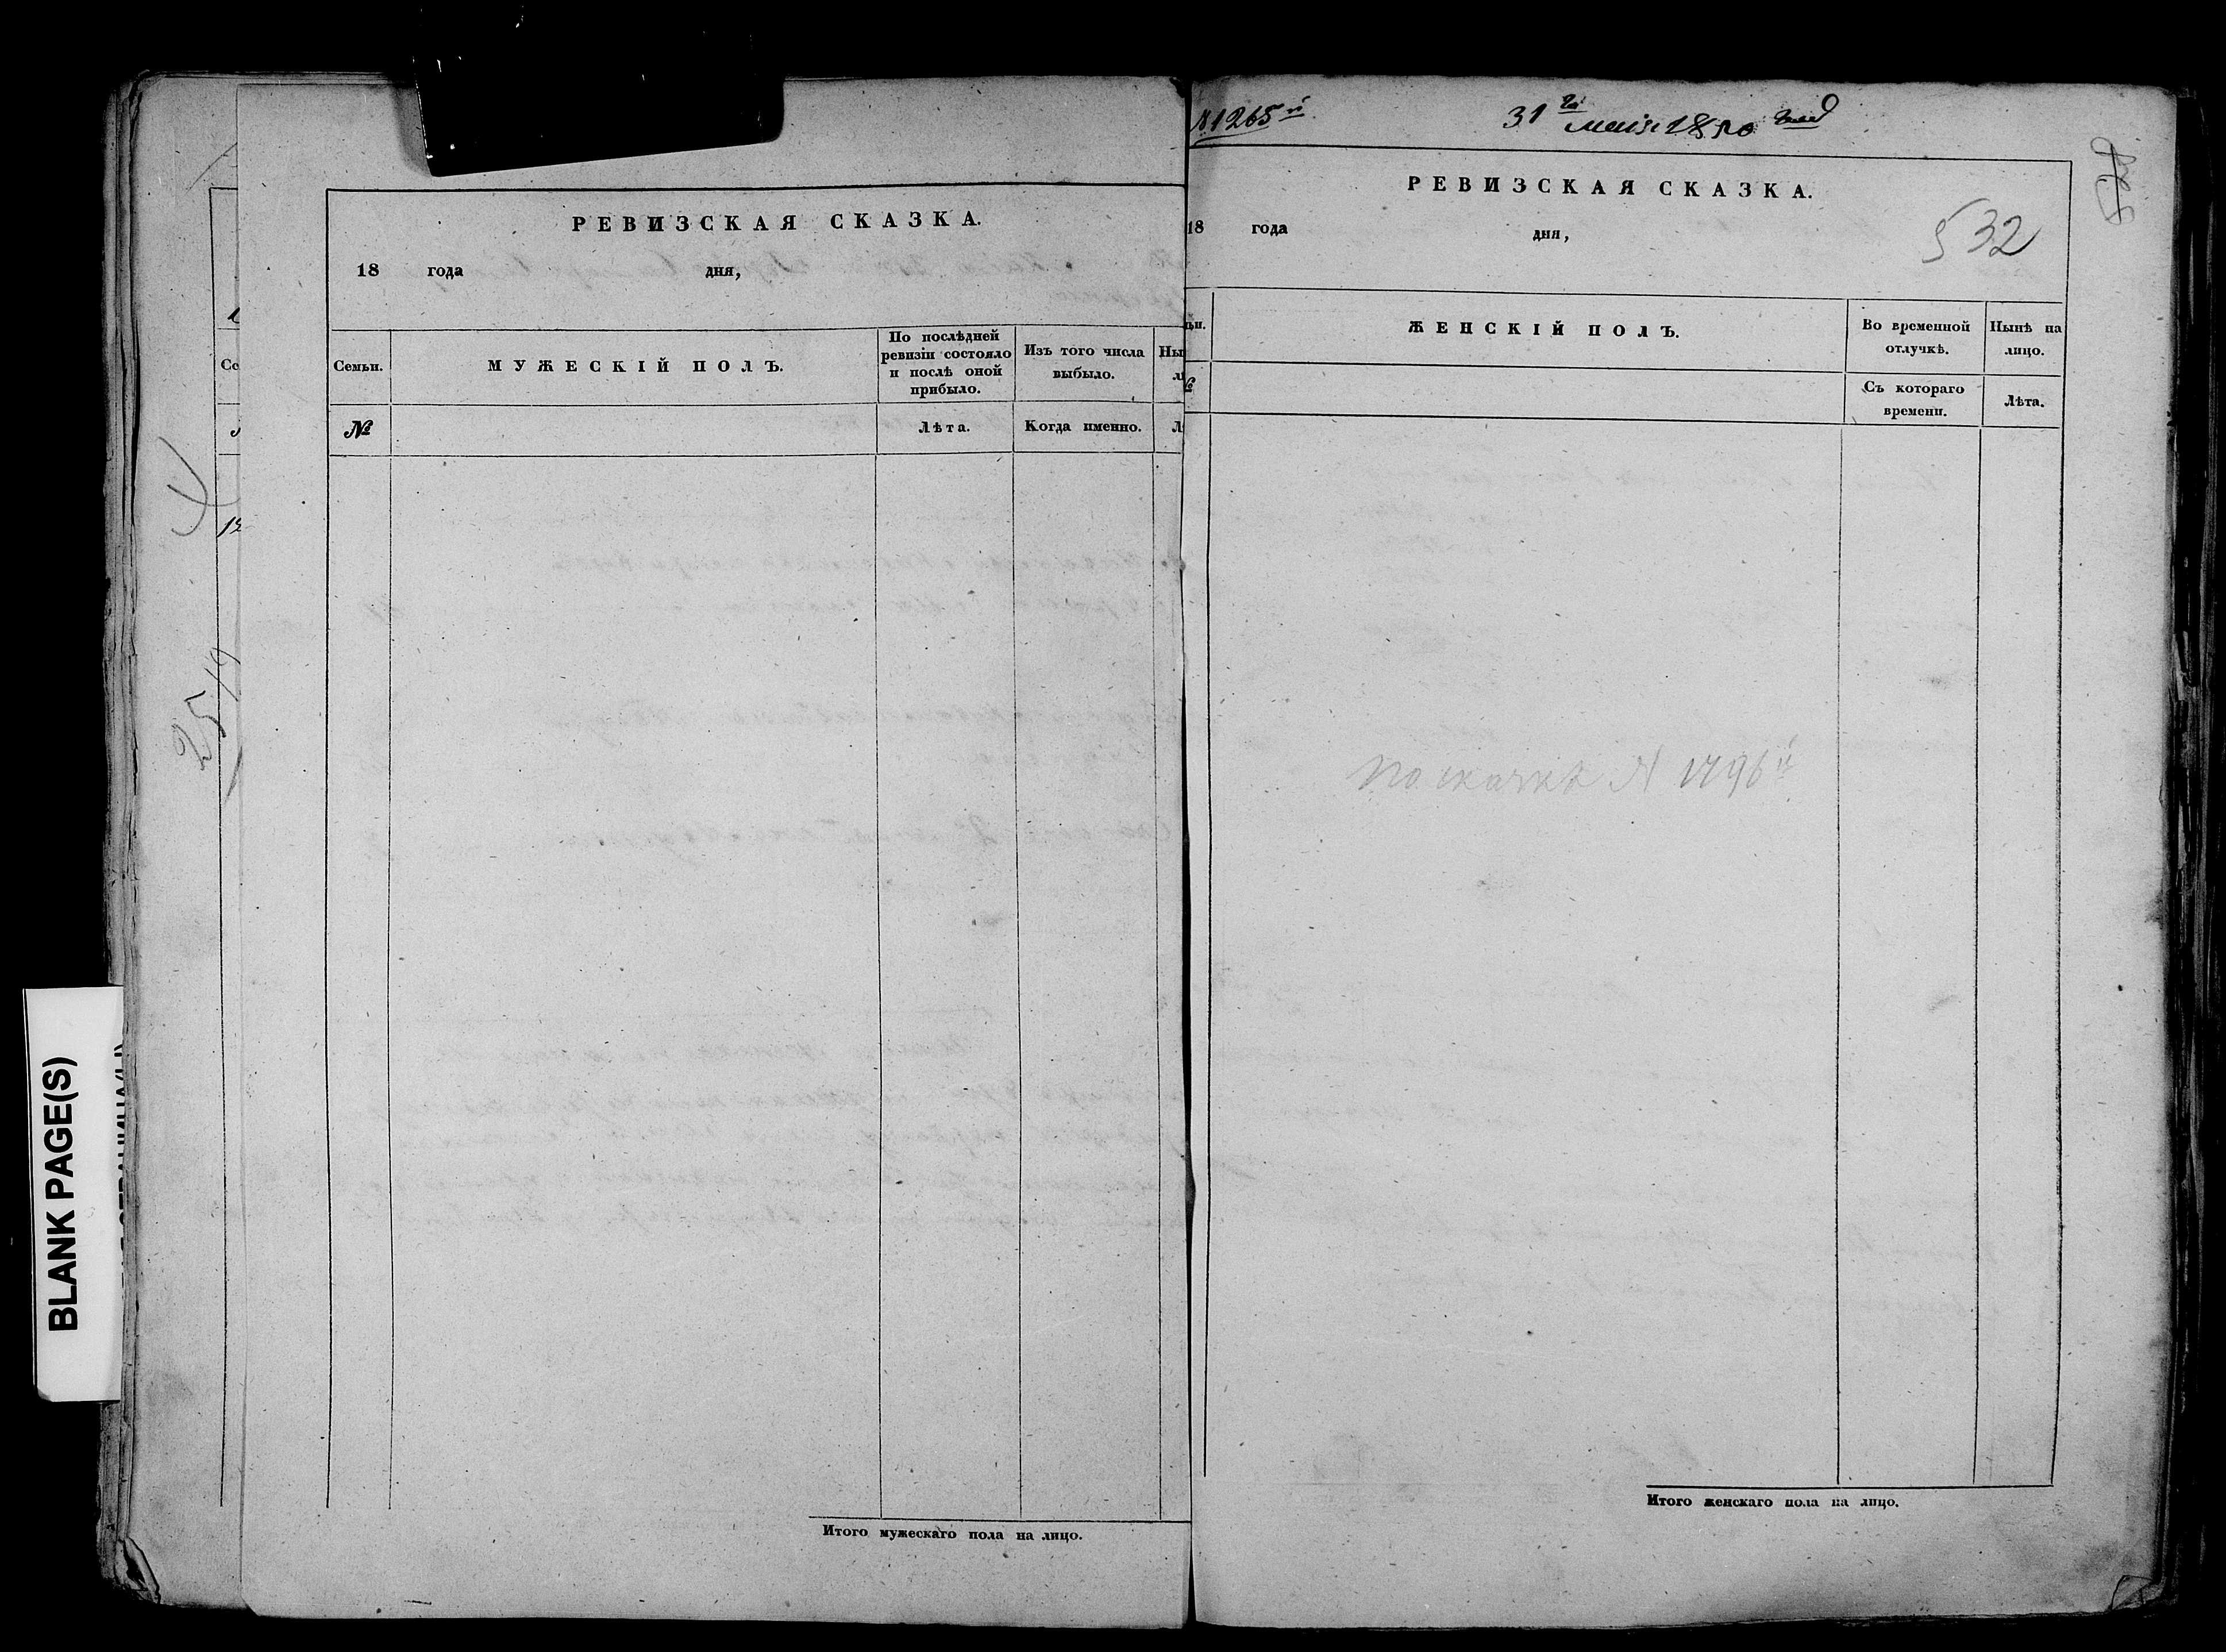 РЕВИЗСКАЯ СКАЗКА.
18 года дня,
Семьи. МУЖЕСКІЙ ПОЛЪ. По послѣдней ревизіи состояло и послѣ оной прибыло. Изъ того числа выбыло. Ны
№ Лѣта. Когда именно. Л
Итого мужескаго пола на лицо.
25/19
12
BLANK PAGE(S)
№ 1265й
31го маія 1850 года
РЕВИЗСКАЯ СКАЗКА.
18 года дня,
532
ЖЕНСКІЙ ПОЛЪ. Во временной отлучкѣ. Нынѣ на лицо.
Съ котораго времени. Лѣта.
По сказкѣ № 1796й
Итого женскаго пола на лицо.